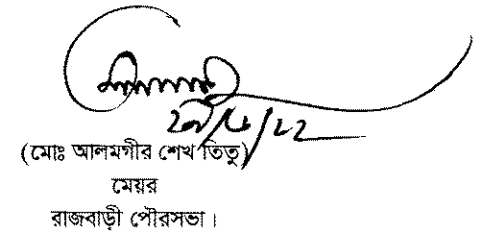 (মোঃ আলমগীর শেখ তিতু)
মেয়র
রাজবাড়ী পৌরসভা।